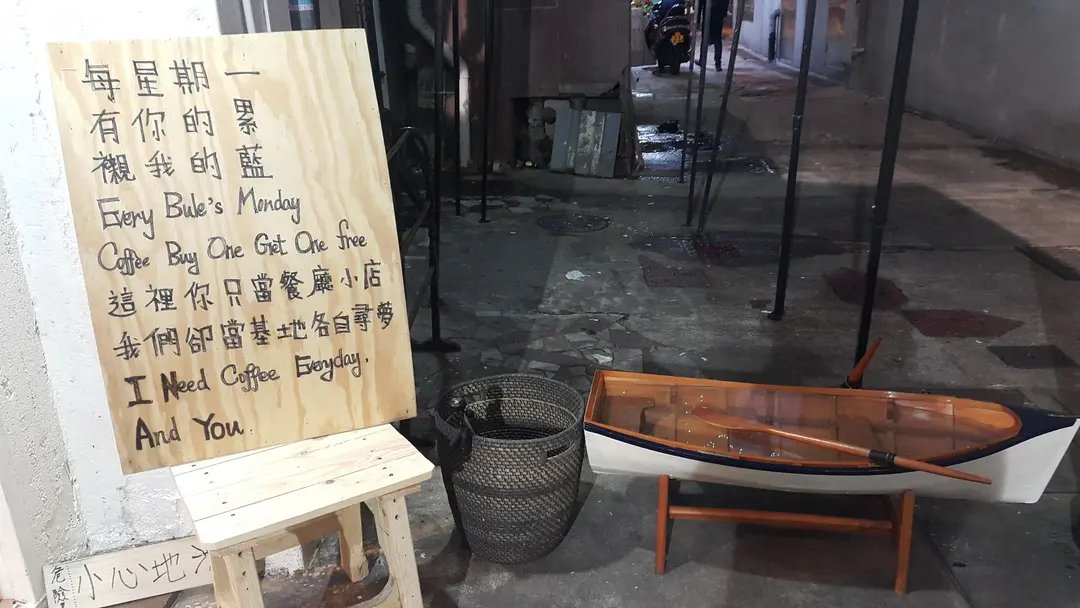 每星期一
有你的累
襯我的藍
Every Bule's Monday
Coffee Buy One Get One free
這裡你只當餐廳小店
我們卻當基地各自尋夢
I Need Coffee Everyday,
And You.
危險!
小心地